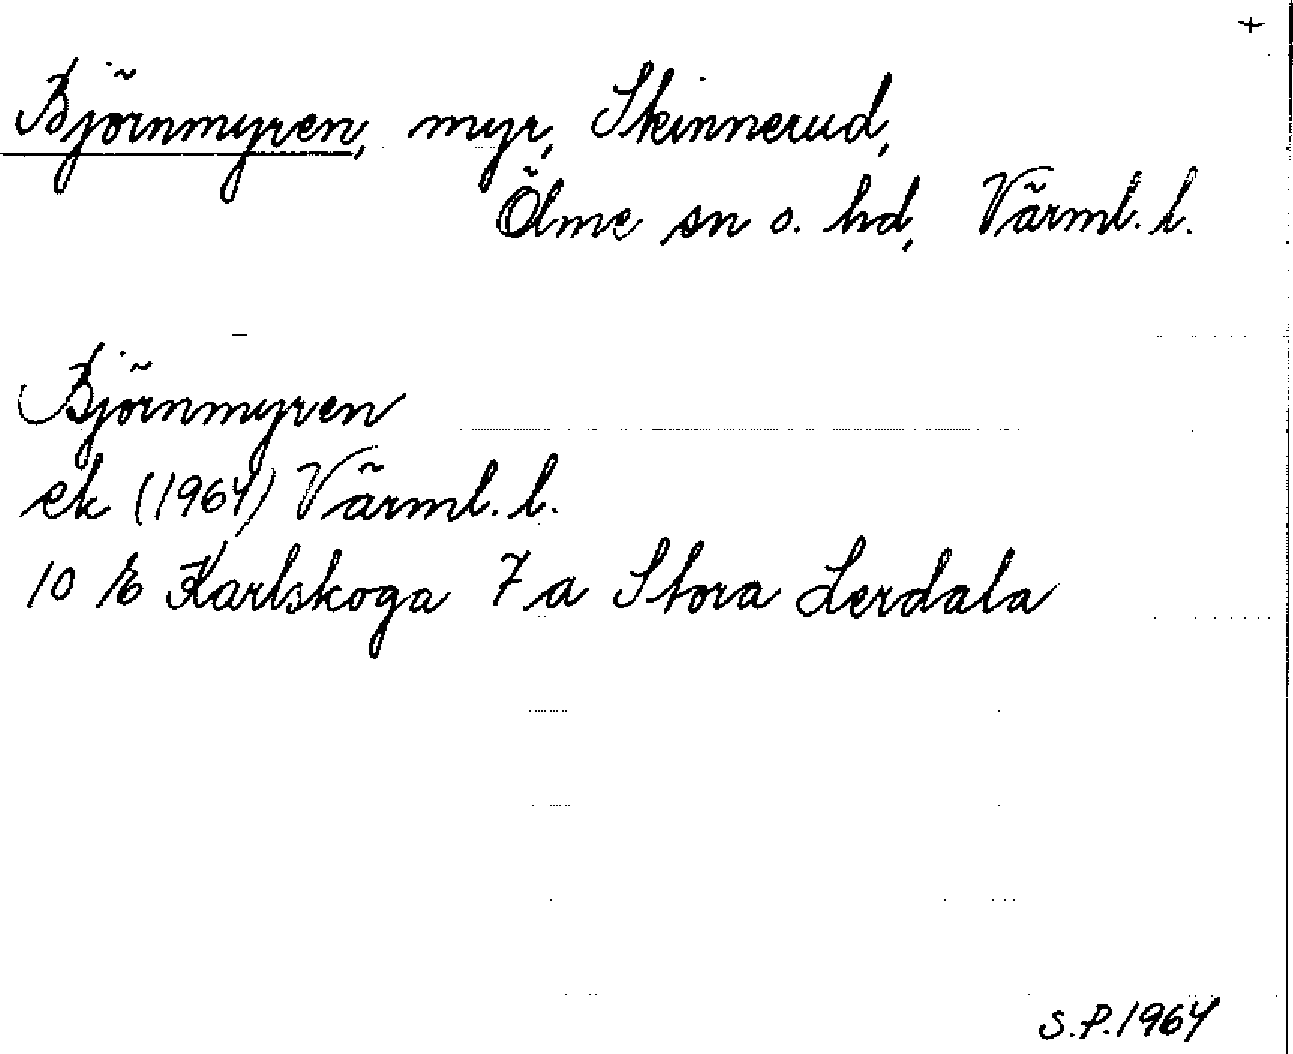 +
Björnmyren, myr, Skinnerud,
Ölme sn o. hd, Värml. l.
Björnmyren
ek (1964) Värml. l.
10 E Karlskoga 7a Stora Lerdala
S.P. 1964